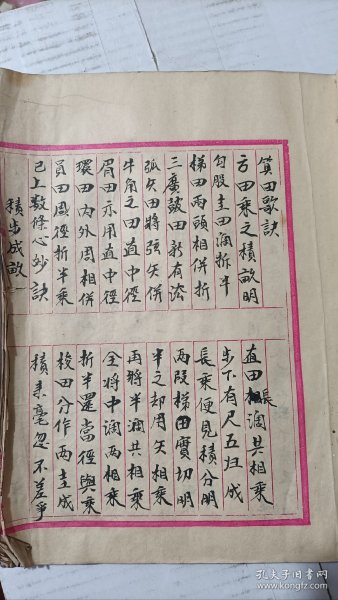 筭田歌訣
直田長濶共相乘
方田乘之積畝明
步下有尺五归成
勾股圭田濶折半
長乘便見積分明
梯田兩頭相併折
兩段梯田實切明
三廣皷田新有法
半之却用矢相乘
弧矢田將弦矢併
再將半濶共相乘
牛角之田直中徑
全将中濶兩相乘
眉田亦用直中徑
折半還當徑與乘
環田內外周相併
梭田分作兩圭成
員田周徑折半乘
積來毫忽不差爭
已上数條心妙訣
積步成畝
孔夫子旧书网